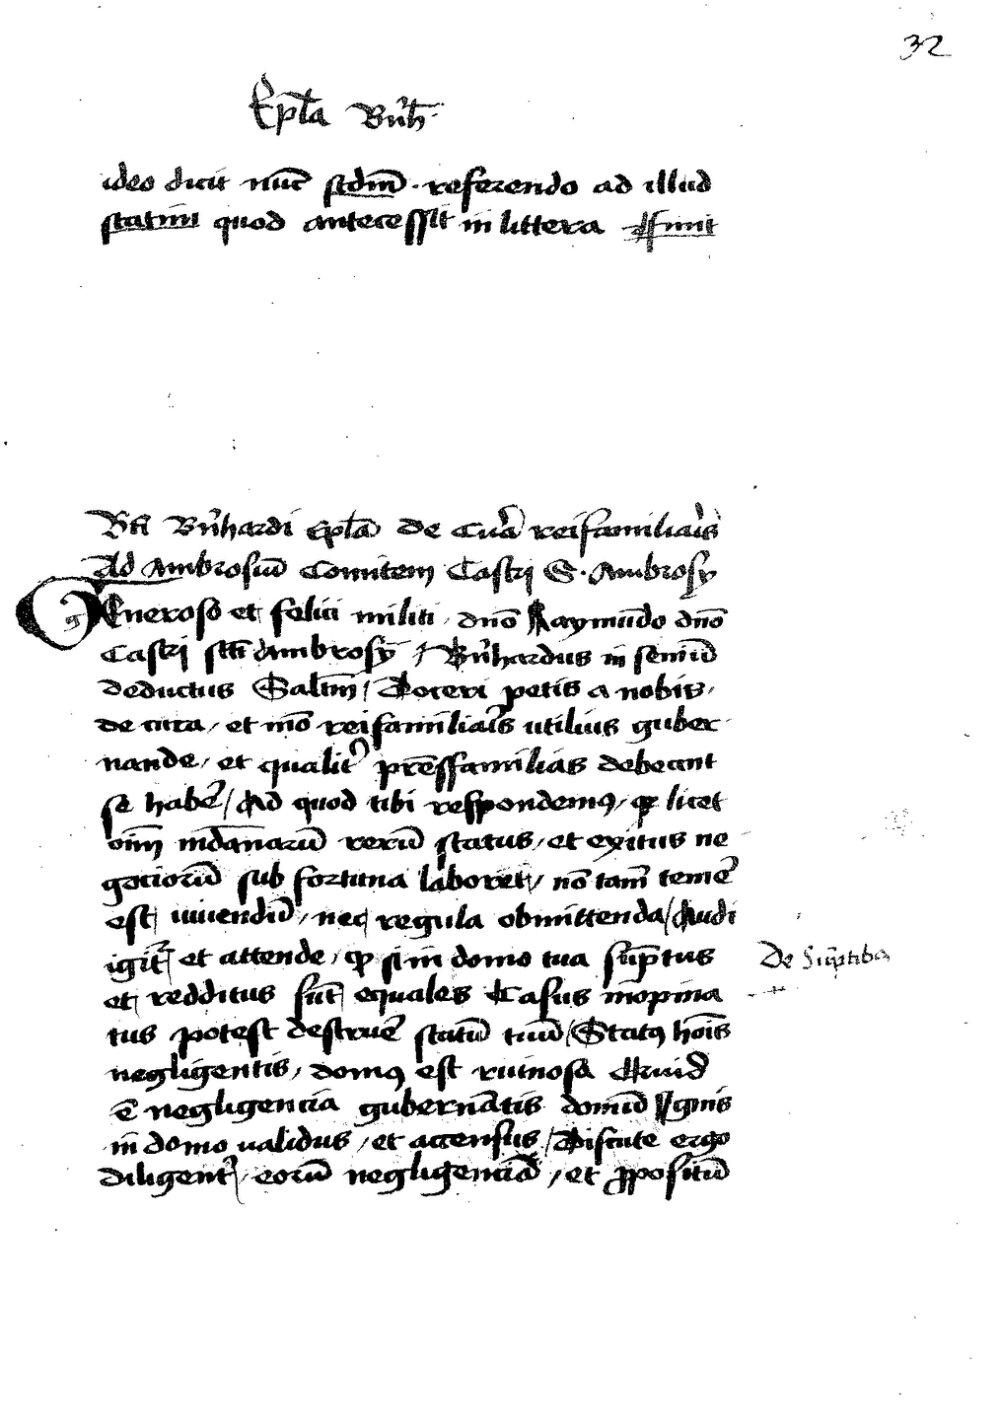 32
Ep̄la Bn̄h
ideo dicit nūc scd̄m · referendo ad illud
statim quod antecessit in littera
Bt̄i Bn̄hardi Ep̄la De Cura reifamiliaris
Ad Ambrosiū Comitem Castri S · Ambrosy
GEneroso et felici militi / dn̄o Raymūdo dn̄o
Castri sc̄ti Ambrosy / Bn̄hardus in seniū
deductus Salt̄m / Doceri petis a nobis /
de cura / et mō reifamiliaris utilius guber
nande / et qualit̉ pr̄esfamilias debeant
se haber̄ / Ad quod tibi respondemꝰ / ꝙ licet
oīm mūdanarū rerū status / et exitus ne
gociorū sub fortuna laboret / nō tam̄ timer̄
est viuendū / nec regula obmittenda / Audi
igit̉ et attende / ꝙ si in domo tua sūptus
et redditus sūt equales Casus inopina
tus potest destruer̄ statū tuū / Statꝰ hoīs
negligentis / domꝰ est ruinosa Quid
ē negligencia gubernātis domū Ignis
in domo validus / et accensus / Discute ergo
diligent̉ / eorū negligenciā / et ꝓpositū
De Sūptibꝰ